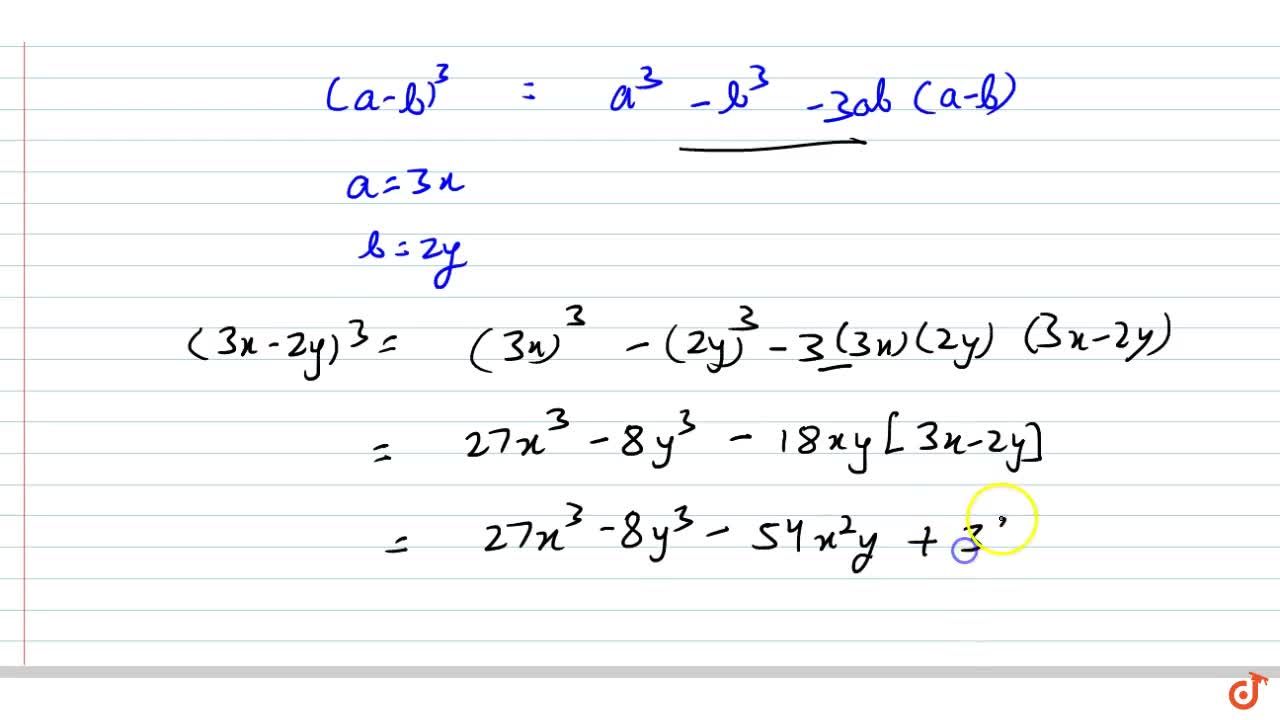 (a-b)³ = a³ - b³ - 3ab (a-b)
a = 3x
b = 2y
(3x - 2y)³ = (3x)³ - (2y)³ - 3 (3x) (2y) (3x - 2y)
= 27x³ - 8y³ - 18xy [3x - 2y]
= 27x³ - 8y³ - 54x²y + 3